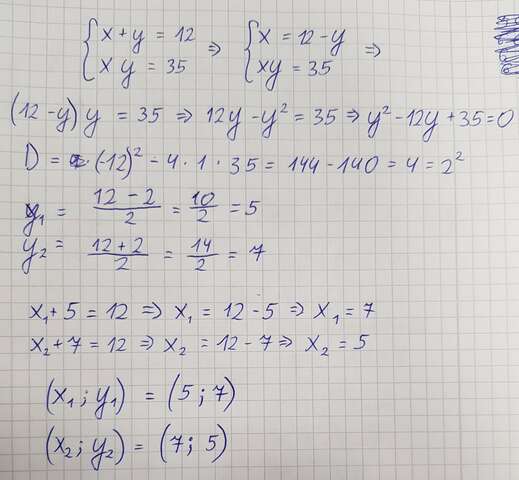 { x + y = 12 ⇒ { x = 12 - y ⇒
{ x y = 35 { xy = 35
(12 - y) y = 35 ⇒ 12y - y² = 35 ⇒ y² - 12y + 35 = 0
D = (-12)² - 4 · 1 · 35 = 144 - 140 = 4 = 2²
y₁ = (12 - 2)/2 = 10/2 = 5
y₂ = (12 + 2)/2 = 14/2 = 7
x₁ + 5 = 12 ⇒ x₁ = 12 - 5 ⇒ x₁ = 7
x₂ + 7 = 12 ⇒ x₂ = 12 - 7 ⇒ x₂ = 5
(x₁ ; y₁) = (5 ; 7)
(x₂ ; y₂) = (7 ; 5)